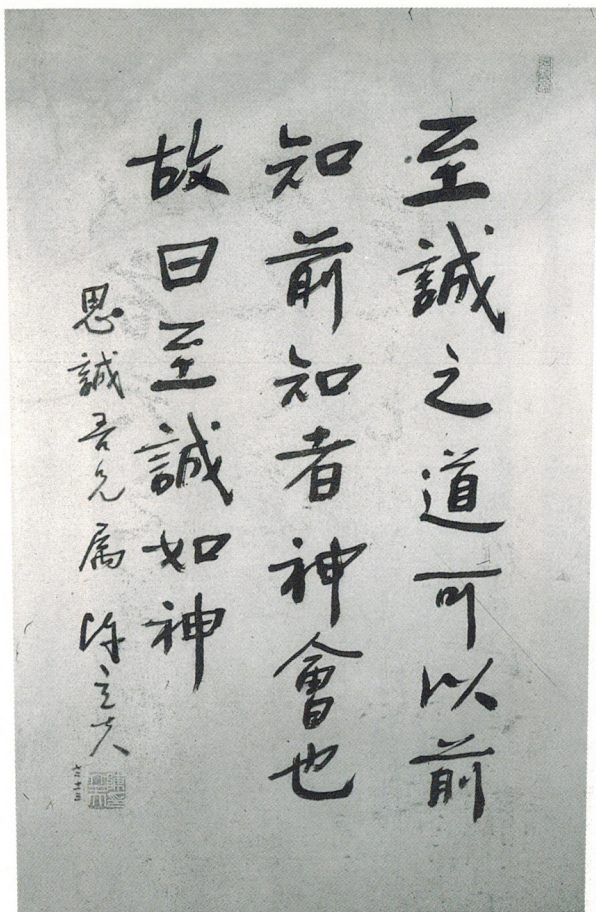 至誠之道可以前
知前知者神會也
故曰至誠如神
思誠吾兄属 陳立夫